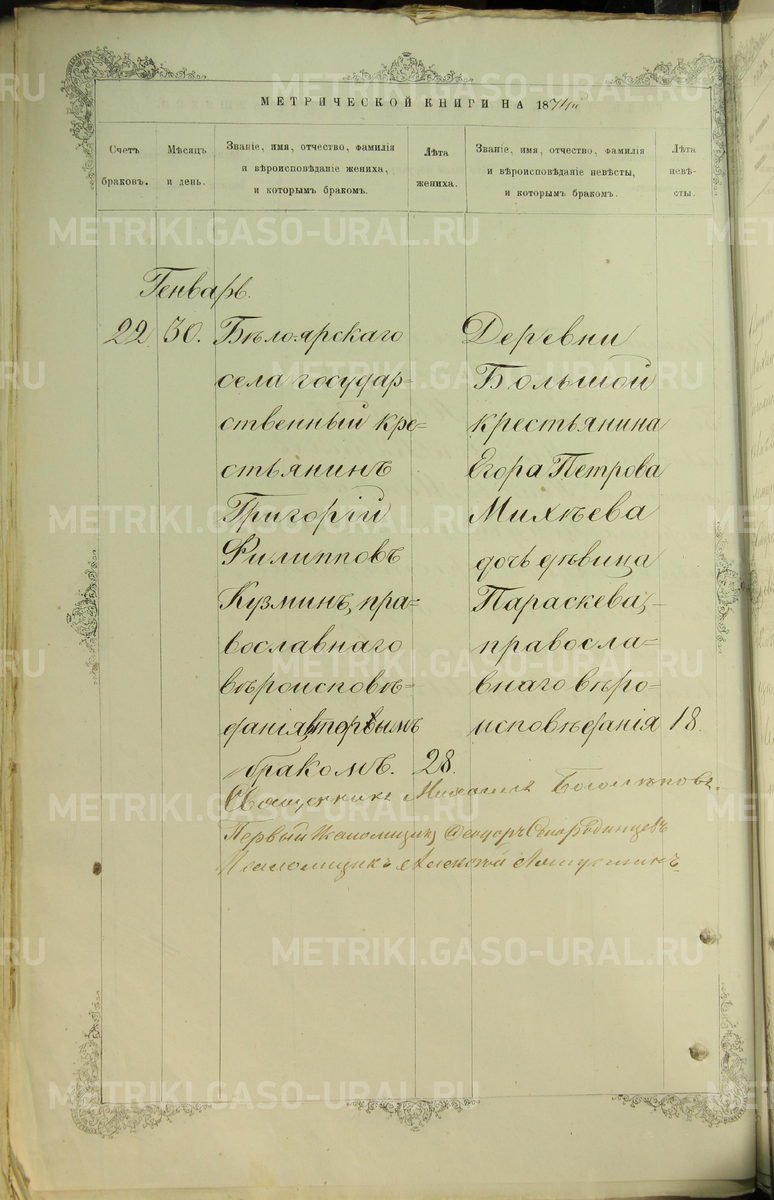 МЕТРИЧЕСКОЙ КНИГИ НА 1874
Счетъ браковъ.
Мѣсяцъ и день.
Званіе, имя, отчество, фамилія и вѣроисповѣданіе жениха, и которымъ бракомъ.
Лѣта жениха.
Званіе, имя, отчество, фамилія и вѣроисповѣданіе невѣсты, и которымъ бракомъ.
Лѣта невѣ-
сты.
Генварь.
22 30. Бѣлоярскаго
села государ=
ственный кре=
стьянинъ
Григорій
Филипповъ
Кузминъ, пра=
вославнаго
вѣроисповѣ=
данія, вторымъ
бракомъ. 28.
Деревни
Большой
крестьянина
Егора Петрова
Михѣева
дочь дѣвица
Параскева,
правосла=
внаго вѣро=
исповѣданія 18.
Священникъ Михаилъ
Первый Псаломщикъ Ѳеодоръ
Псаломщикъ Алексѣй
METRIKI.GASO-URAL.RU